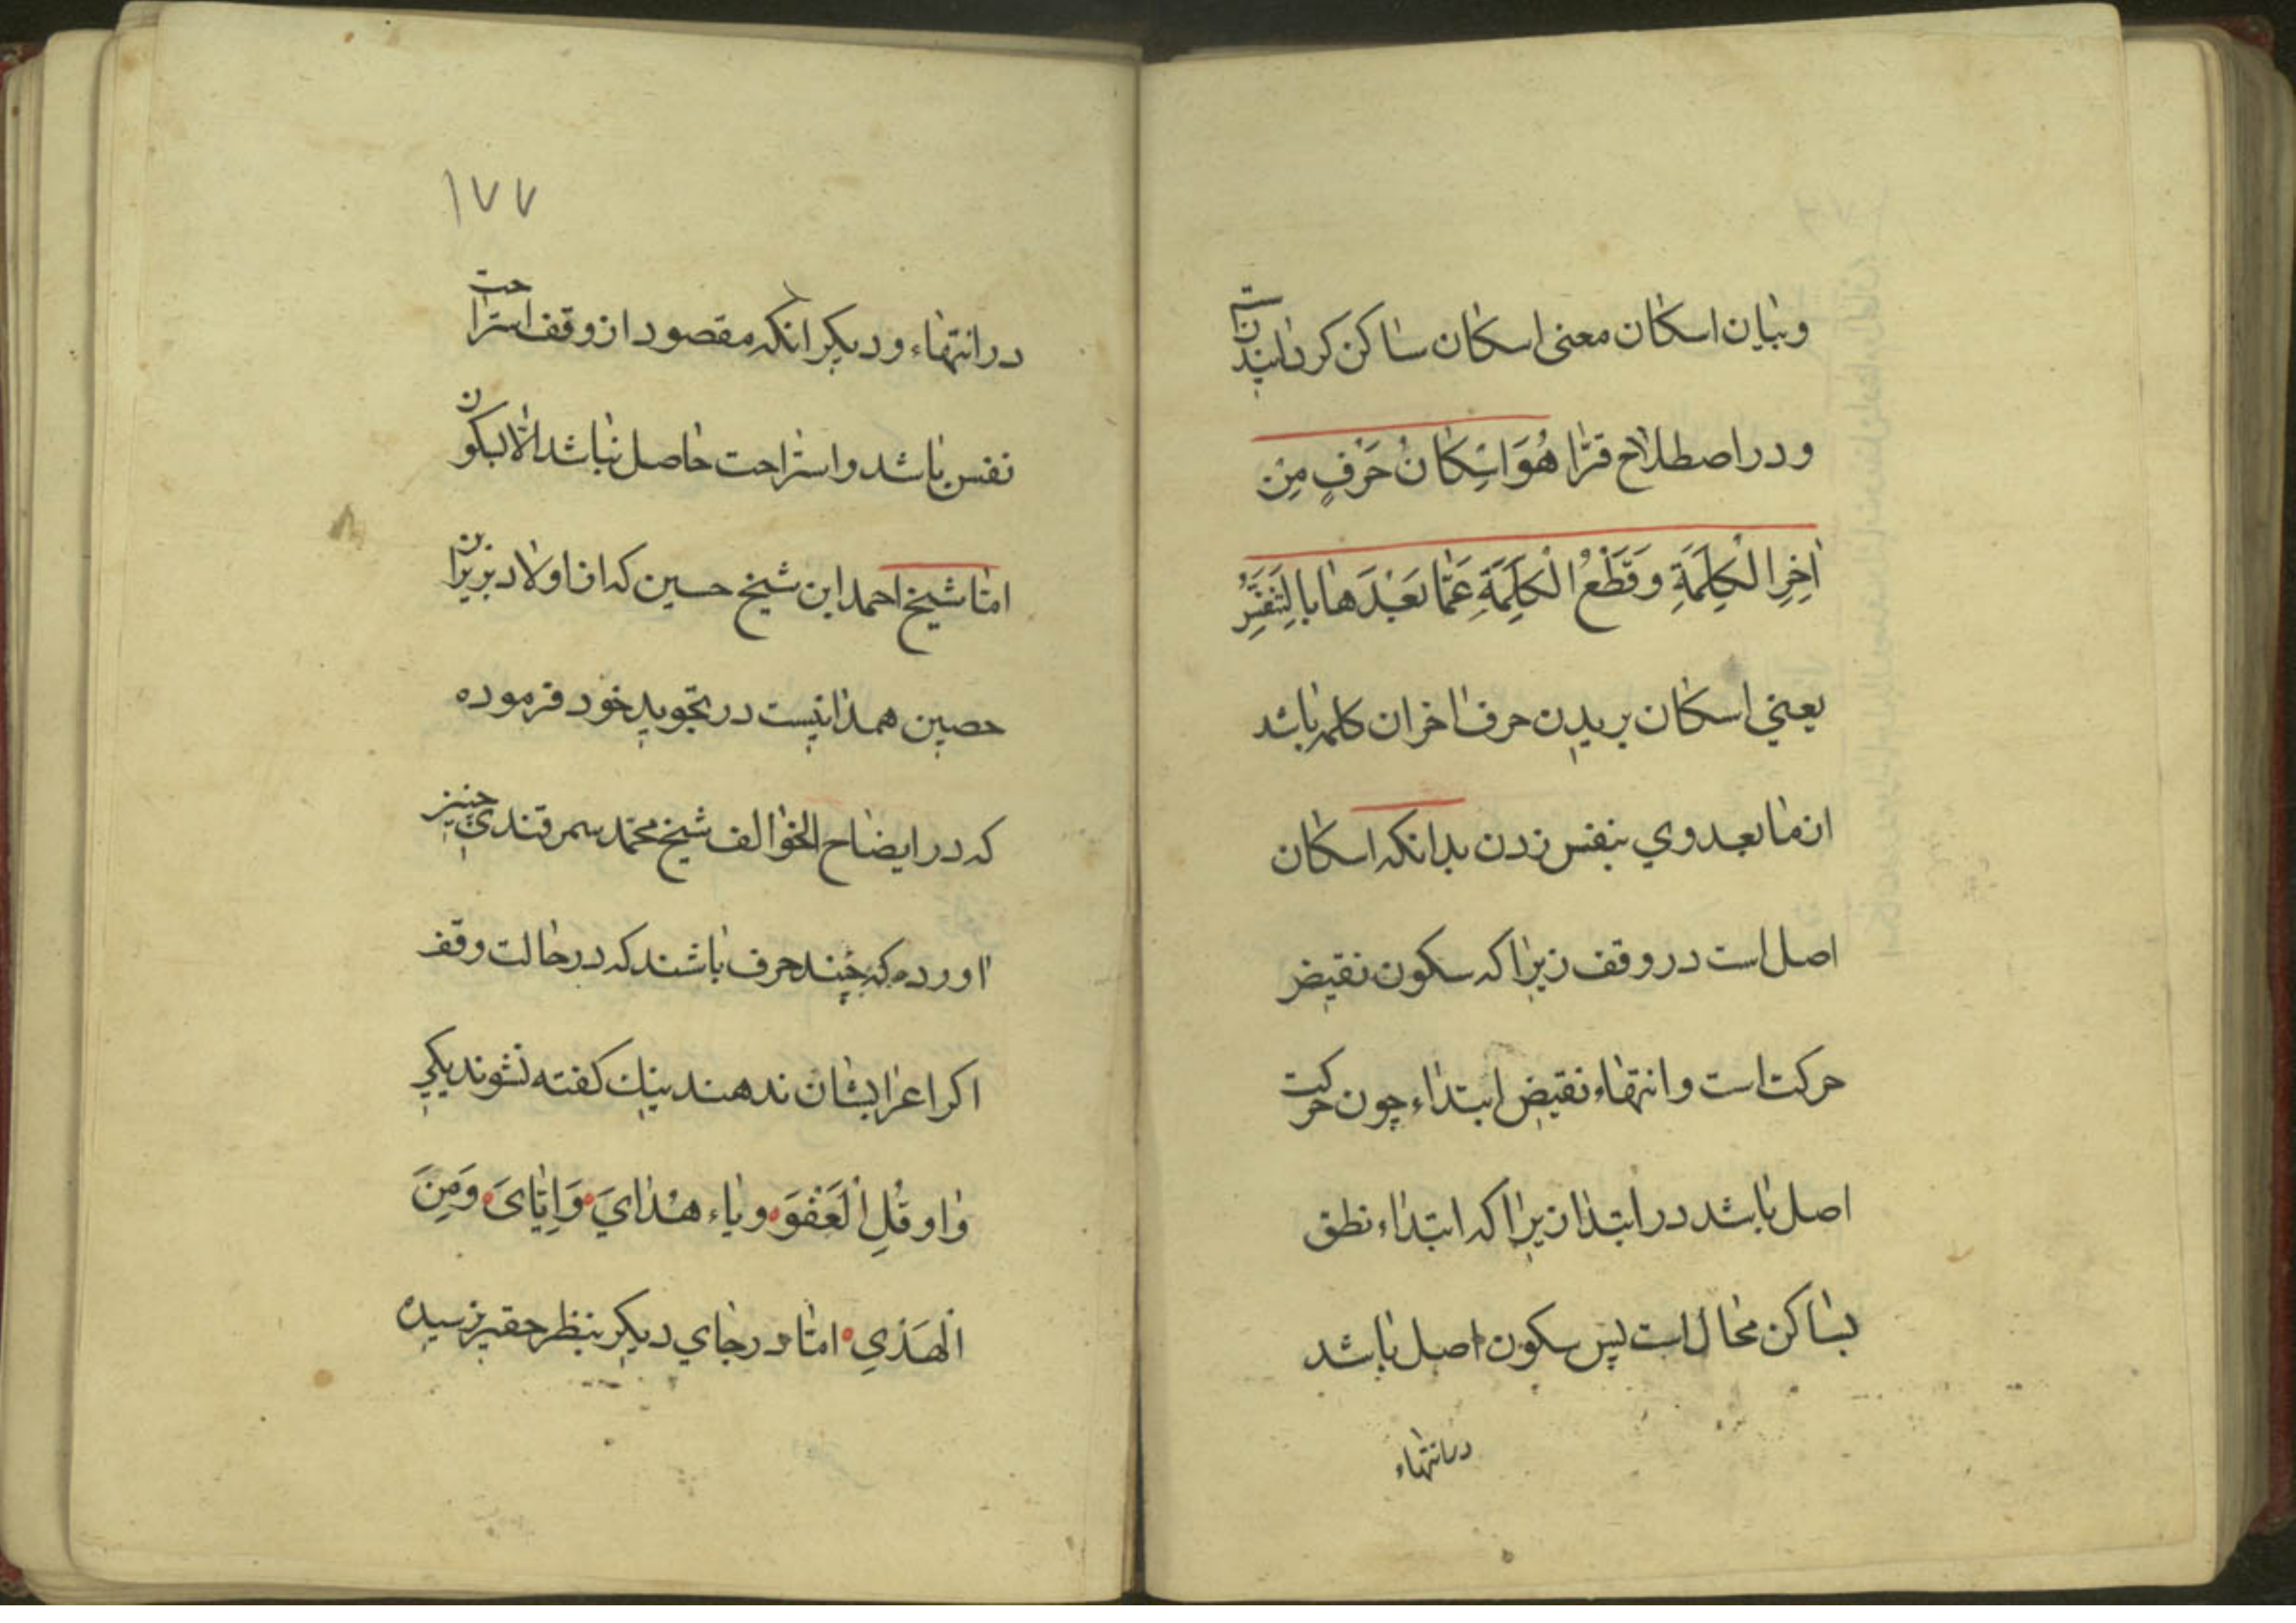 وبیان اسکان معنی اسکان ساکن کردانیدنست
ودر اصطلاح قرّا هُوَ اسِکانُ حَرْفٍ مِن
اٰخِرِ الْکَلِمَةِ وَقَطْعُ الْکَلِمَةِ عَمّٰا بَعْدَهٰا بِالتَنَفُّسِ
یعنی اسکان بریدن حرف اخر ان کلمه باشد
از مابعد وی بنفس زدن بدانکه اسکان
اصل است در وقف زیرا که سکون نقیض
حرکت است وانتهاء نقیض ابتداء چون حرکت
اصل باشد در ابتدا زیرا که ابتداء نطق
بساکن محال است پس سکون اصل باشد
در انتهاء
۱۷۷
در انتهاء ودیکر انکه مقصود از وقف استراحت
نفس باشد واستراحت حاصل نباشد الّا بسکون
امّا شیخ احمد ابن شیخ حسین که از اولاد
حصین همدانیست در تجوید خود فرموده
که در ایضاح الخوالف شیخ محمّد سمرقندی چنین
اورده که چند حرف باشند که در حالت وقف
اکر اعرابشان ندهند نیك کفته نشوند یکی
واو قُلِ الْعَفْوَ ویاء هُدٰایَ وَاِیّٰایَ وَمِنَ
الْهَدْیِ امّا در جای دیکر بنظر حقیر نرسیده